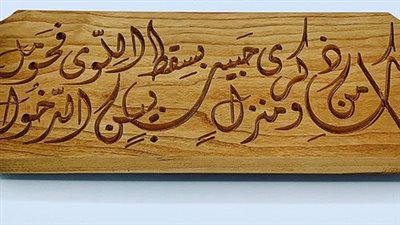 من ذكرى حبيبٍ ومنزلِ
بسِقطِ اللِّوى بين الدَّخول فحَومل